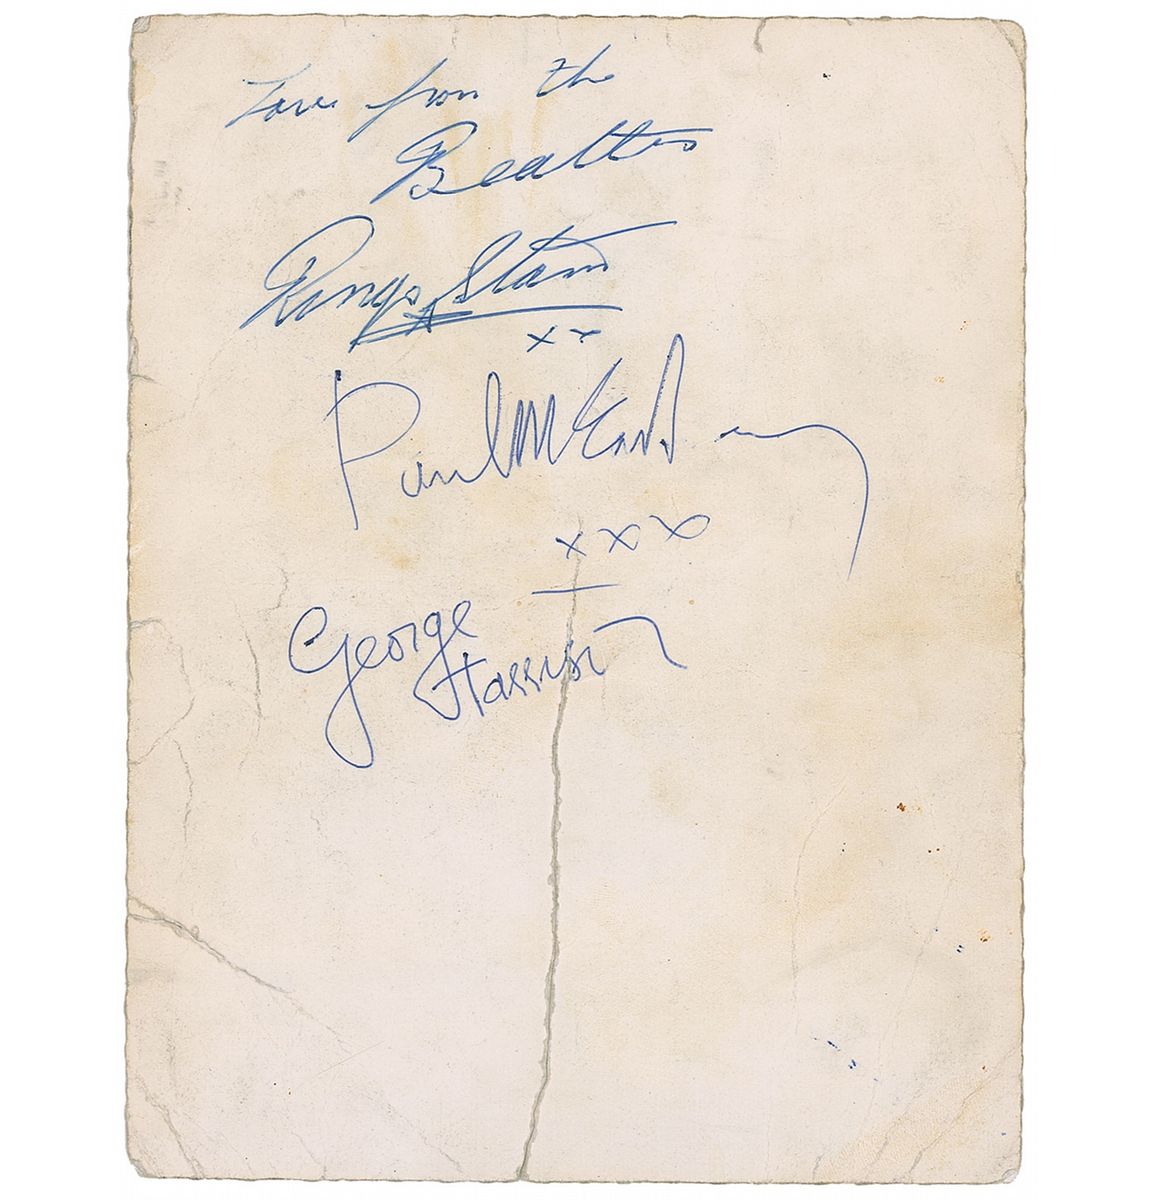 Love from the
Beatles
Ringo Starr
xx
Paul McCartney
xxx
George
Harrison